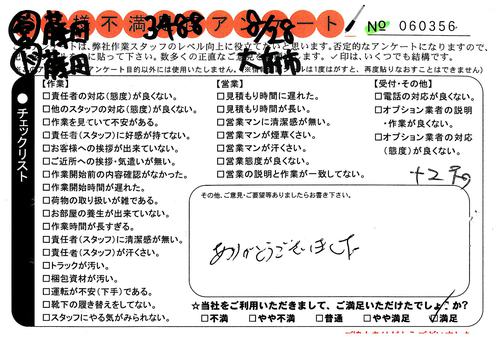 お客様不満足アンケート 3488 8/28 № 060356
営 藤田 大府市
藤田
は、弊社作業スタッフのレベル向上に役立てたいと思います。否定的なアンケートになりますので、
に貼って下さい。数多くの正直なご意見を
✓印は、いくつでも結構です。
アンケート目的以外には使用いたしません。
度はがすと、再度貼りなおすことはできません)
チェックリスト
【作業】
□責任者の対応(態度)が良くない。
□他のスタッフの対応(態度)が良くない。
□作業を見ていて不安がある。
□責任者(スタッフ)に好感が持てない。
□お客様への挨拶が出来ていない。
□ご近所への挨拶・気遣いが無い。
□作業開始前の内容確認がなかった。
□作業開始時間が遅れた。
□荷物の取り扱いが雑である。
□お部屋の養生が出来ていない。
□作業時間が長すぎる。
□責任者(スタッフ)に清潔感が無い。
□責任者(スタッフ)が汗くさい。
□トラックが汚い。
□梱包資材が汚い。
□運転が不安(下手)である。
□靴下の履き替えをしてない。
□スタッフにやる気がみられない。
【営業】
□見積もり時間に遅れた。
□見積もり時間が長い。
□営業マンに清潔感が無い。
□営業マンが煙草くさい。
□営業マンが汗くさい。
□営業態度が良くない。
□営業の説明と作業が一致してない。
【受付・その他】
□電話の対応が良くない。
□オプション業者の説明
・作業が良くない。
□オプション業者の対応
(態度)が良くない。
その他、ご意見・ご要望等ありましたらお書き下さい。
ありがとうございました
☆当社をご利用いただきまして、ご満足いただけたでしょうか?
□不満 □やや不満 □普通 □やや満足 ☑満足